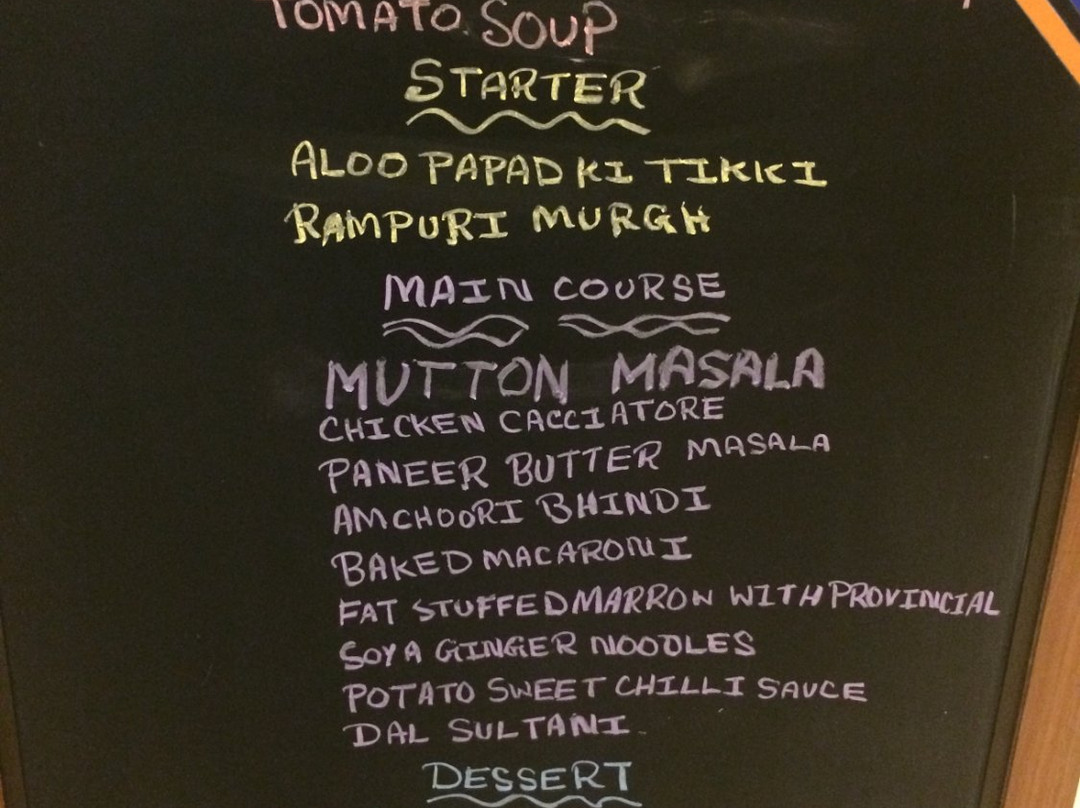 TOMATO SOUP
STARTER
ALOO PAPAD KI TIKKI
RAMPURI MURGH
MAIN COURSE
MUTTON MASALA
CHICKEN CACCIATORE
PANEER BUTTER MASALA
AMCHOORI BHINDI
BAKED MACARONI
FAT STUFFED MARRON WITH PROVINCIAL
SOYA GINGER NOODLES
POTATO SWEET CHILLI SAUCE
DAL SULTANI
DESSERT